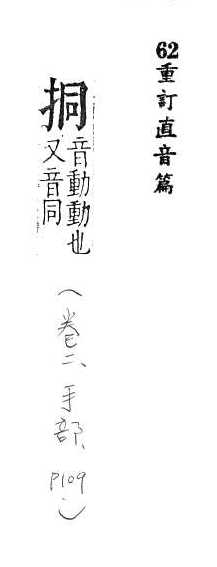 62重訂直音篇
挏
音動動也
又音同
(卷二、手部、P109)